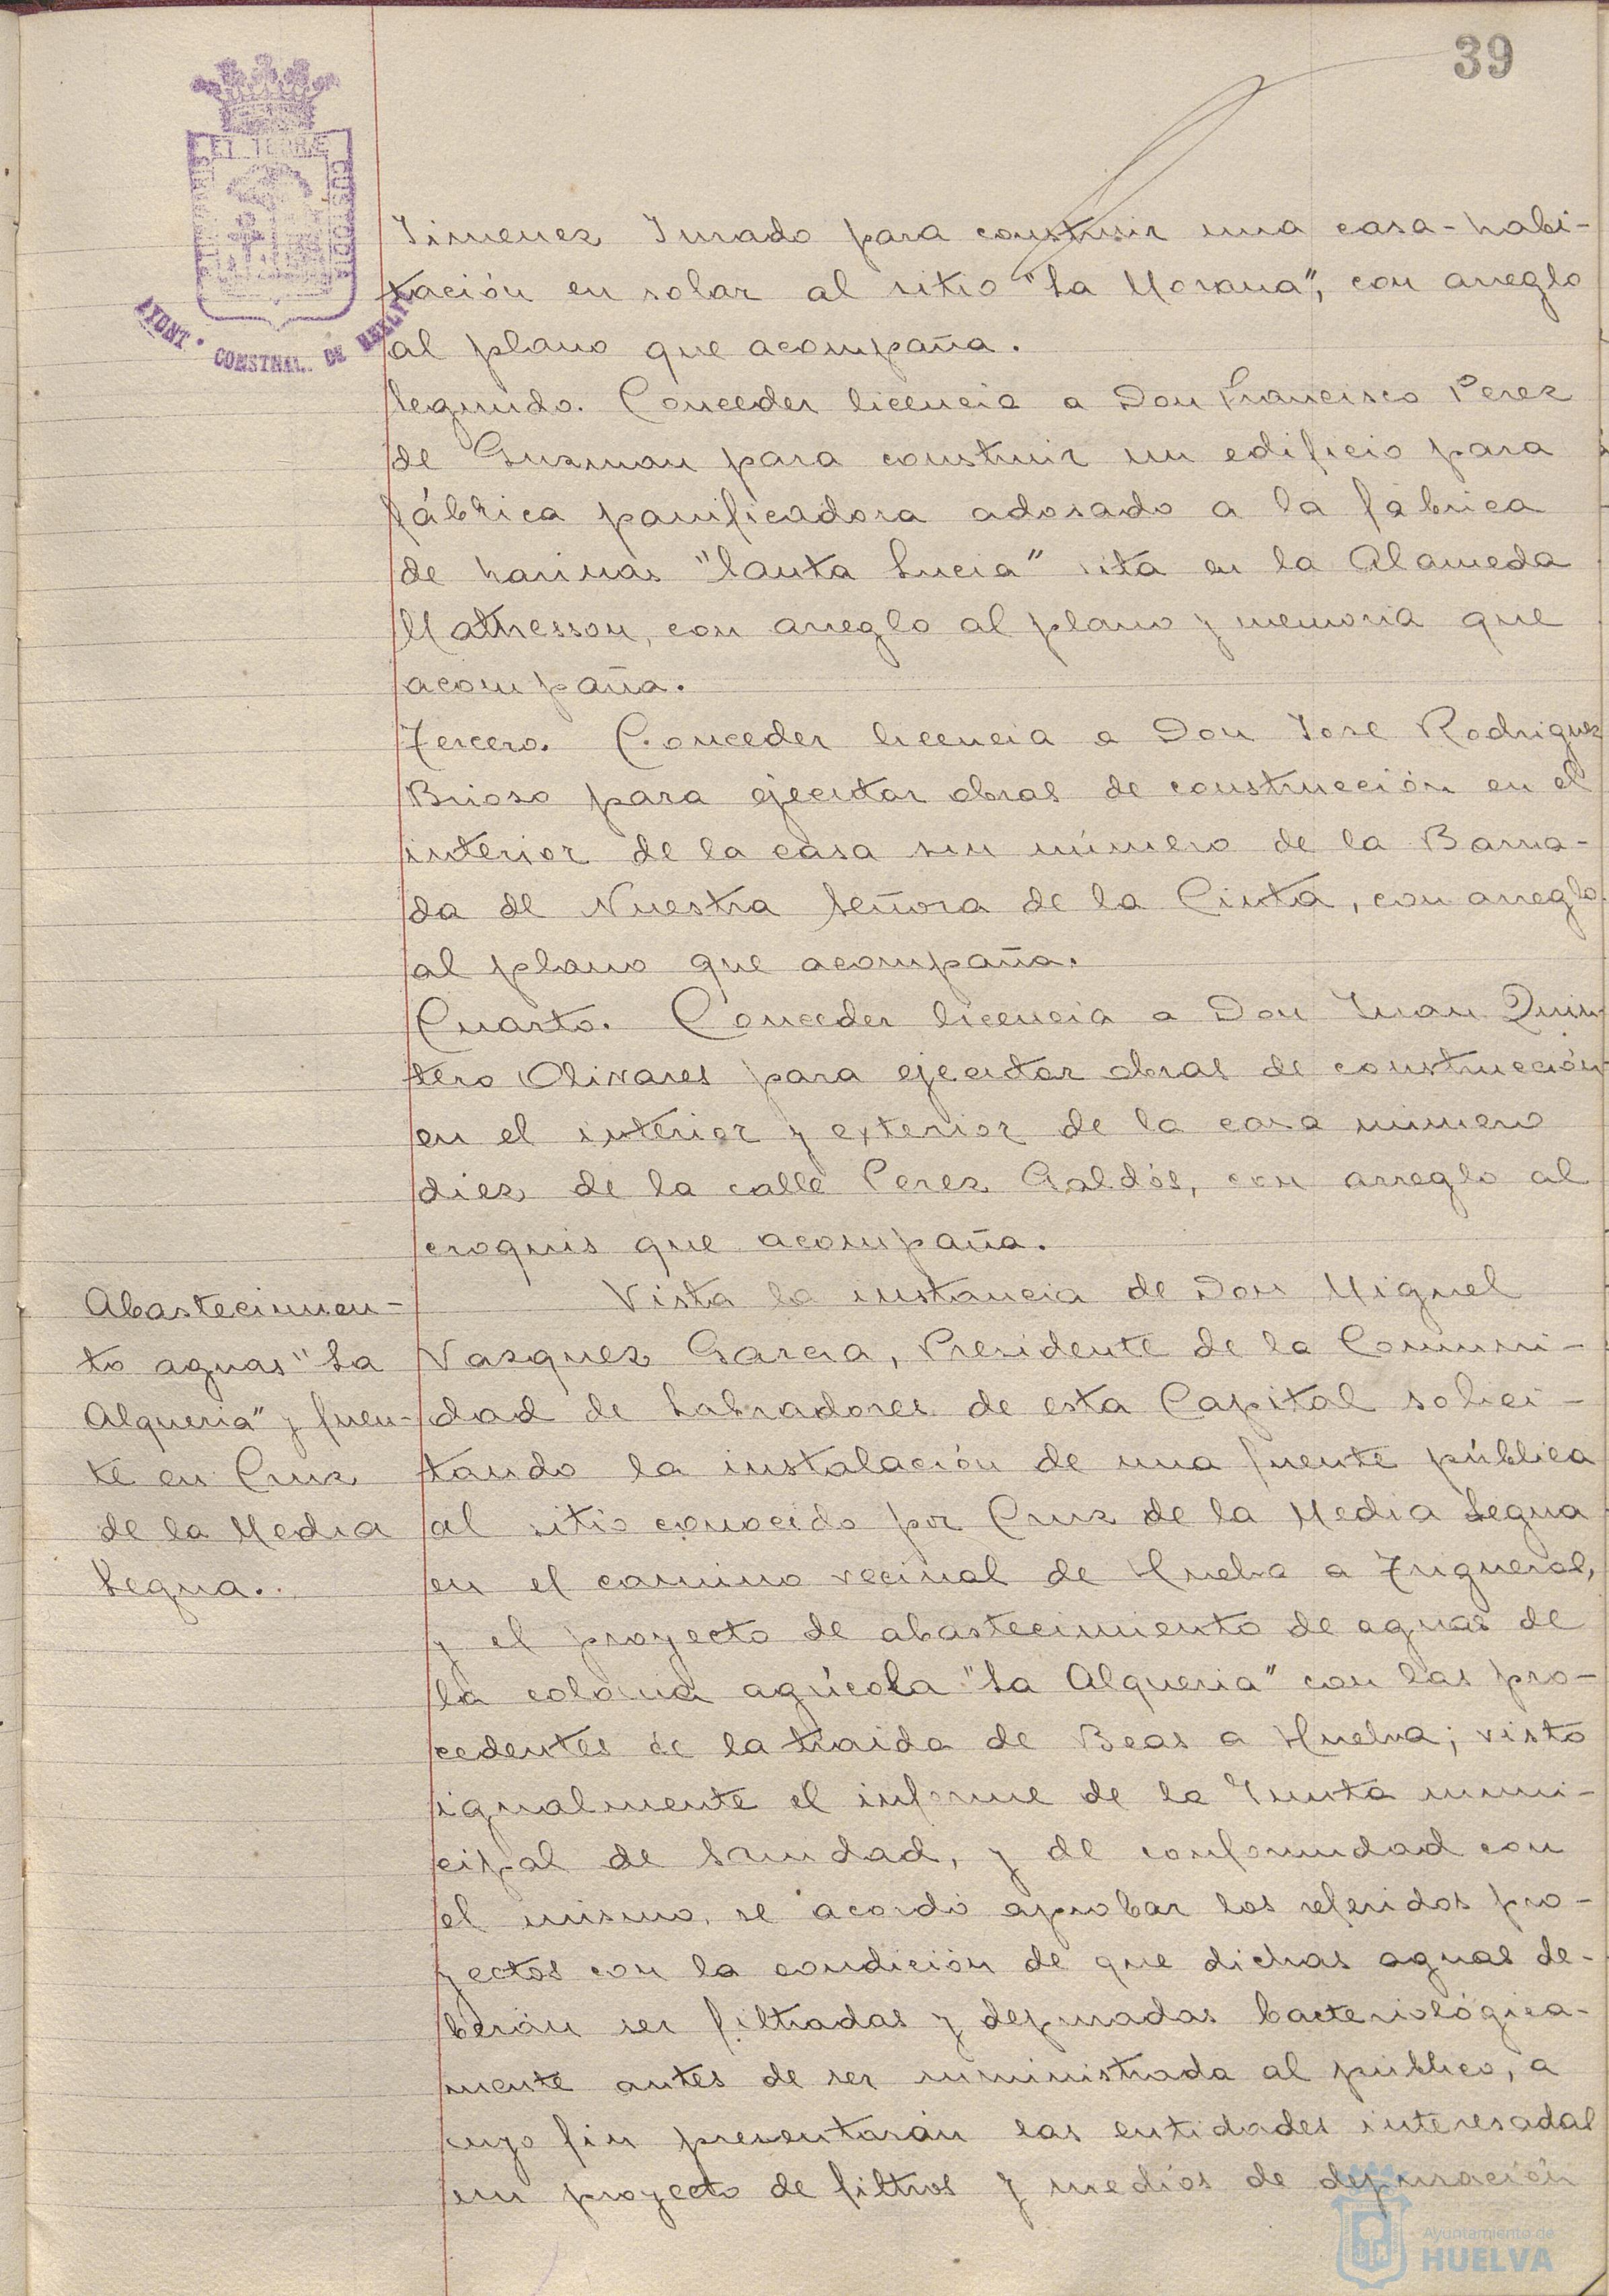 39
PORTUS MARIS ET TERRÆ CUSTODIA
AYUNT. CONSTNAL. DE HUELVA
Jimenez Jurado para construir una casa-habi-
tación en solar al sitio "La Morana", con arreglo
al plano que acompaña.
Segundo. Conceder licencia a Don Francisco Perez
de Guzman para construir un edificio para
fábrica panificadora adosado a la fábrica
de harinas "Santa Lucia" sita en la Alameda
Mathesson, con arreglo al plano y memoria que
acompaña.
Tercero. Conceder licencia a Don Jose Rodriguez
Brioso para ejecutar obras de construcción en el
interior de la casa sin número de la Barria-
da de Nuestra Señora de la Cinta, con arreglo
al plano que acompaña.
Cuarto. Conceder licencia a Don Juan Quin-
tero Olivares para ejecutar obras de construcción
en el interior y exterior de la casa número
diez de la calle Perez Galdós, con arreglo al
croquis que acompaña.
Abastecimien-
to aguas "La
Alqueria" y fuen-
te en Cruz
de la Media
Legua.
Vista la instancia de Don Miguel
Vazquez Garcia, Presidente de la Comuni-
dad de Labradores de esta Capital solici-
tando la instalación de una fuente pública
al sitio conocido por Cruz de la Media Legua
en el camino vecinal de Huelva a Trigueros,
y el proyecto de abastecimiento de aguas de
la colonia agrícola "La Alqueria" con las pro-
cedentes de la traida de Beas a Huelva; visto
igualmente el informe de la Junta muni-
cipal de Sanidad, y de conformidad con
el mismo, se acordó aprobar los referidos pro-
yectos con la condición de que dichas aguas de-
berán ser filtradas y depuradas bacteriológica-
mente antes de ser suministrada al público, a
cuyo fin presentarán las entidades interesadas
un proyecto de filtros y medios de depuración
Ayuntamiento de
HUELVA